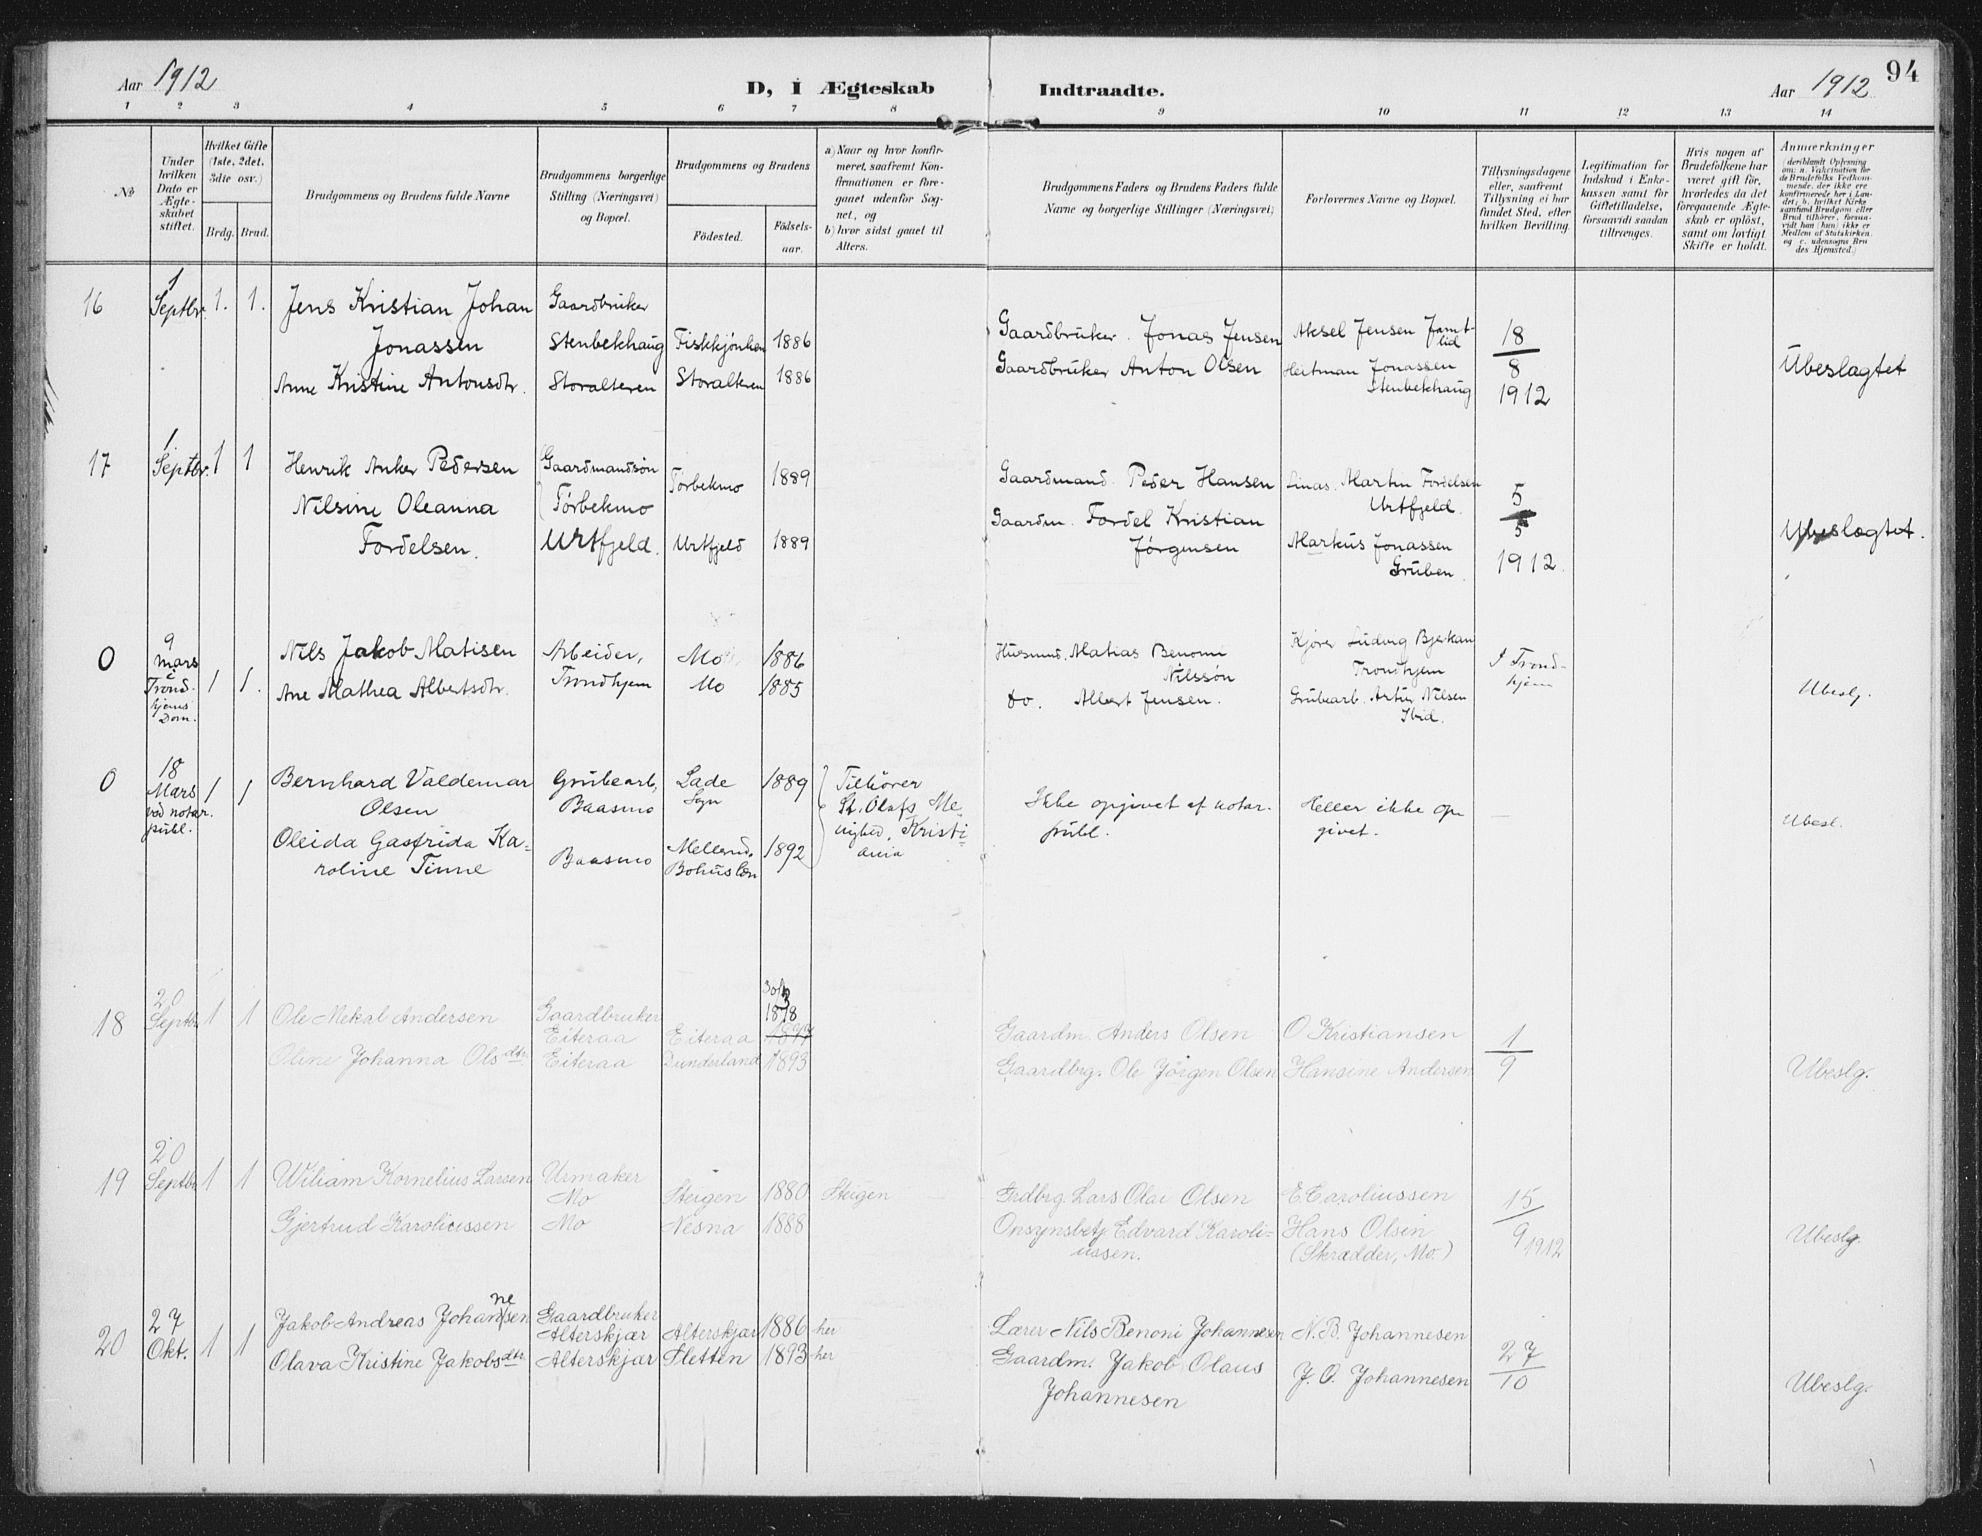 Aar 1912
D, i Ægteskab
Indtraadte.
Aar 1912
94
1 2 3 4 5 6 7 8 9 10 11 12 13 14
No
Under hvilken Dato er Ægteskabet stiftet.
Hvilket Gifte (1ste, 2det, 3die osv.)
Brdg. Brud.
Brudgommens og Brudens fulde Navne
Brudgommens borgerlige Stilling (Næringsvei) og Bopæl.
Brudgommens og Brudens
Födested.
Födselsaar.
a) Naar og hvor konfirmeret, saafremt Konfirmationen er foregaaet udenfor Sognet, og
b) hvor sidst gaaet til Alters.
Brudgommens Faders og Brudens Faders fulde Navne og borgerlige Stillinger (Næringsvei)
Forlovernes Navne og Bopæl.
Tillysningsdagene eller, saafremt Tillysning ei har fundet Sted, efter hvilken Bevilling.
Legitimation for Indskud i Enkekassen samt for Giftetilladelse, forsaavidt saadan tiltrænges.
Hvis nogen af Brudefolkene har været gift før, hvorledes da det foregaaende Ægteskab er oplöst, samt om lovligt Skifte er holdt.
Anmerkninger
16
1 Septbr. 1. 1.
Jens Kristian Johan
Jonassen
Anne Kristine Antonsdtr.
Gaardbruker
Stenbekhaug
Storalteren
Storalteren
1886
1886
Gaardbruker. Jonas Jensen
Gaardbruker Anton Olsen
Aksel Jensen Jamtlid
Jonassen
Stenbekhaug
18
8
1912
Ubeslagtet
17
1 Septbr. 1 1
Henrik Anker Pedersen
Nilsine Oleanna
Fordelsen.
Gaardmandsön
Törbekmo
Urtfjeld.
Törbekmo
Urtfjeld
1889
1889
Gaardmand. Peder Hansen
Gaardm. Fordel Kristian
Jörgensen
Martin Fordelsen
Urtfjeld.
Markus Jonassen
Gruben.
5
5
1912.
Ubeslagtet.
0
9 mars i Trondhjems Dom. 1 1.
Nils Jakob Matisen
Ane Mathea Albertsdtr.
Arbeider,
Trondhjem
Mo
Mo
1886
1885
Husmand. Matias Benoni
Nilssön
do. Albert Jensen.
Kjörer Ludvig Bjerkan
Trondhjem
Grubearb. Artur Nilsen
Ibid.
I Trondhjem
Ubeslg.
0
18 Mars ved notar. publ. 1 1
Bernhard Valdemar
Olsen
Oleida Gasfrida Karoline
Tinne
Grubearb,
Baasmo
Baasmo
Lade
Sogn
Melland,
Bohuslen
1889
1892
Tilhörer
St. Olafs Menighed, Kristiania
Ikke opgivet af notar.
publ.
Heller ikke opgivet.
—
Ubesl.
18
20 Septbr. 1 1
Ole Mekal Andersen
Oline Johanna Olsdtr.
Gaardbruker
Eiteraa
Eiteraa
Eiteraa
Dunderland
1893
Gaardm. Anders Olsen
Gaardbrg. Ole Jörgen Olsen
O Kristiansen
Hansine Andersen
1
9
Ubeslg.
19
20 Septbr. 1 1
Wiliam Kornelius Larsen
Gjertrud Karoliussen
Urmaker
Mo
Mo
Steigen
Nesna
1880
1888
Steigen
Grdbrg. Lars Olai Olsen
Opsynsbetj Edvard Karoliussen.
E. Caroliussen
Hans Olsen
(Skrædder, Mo.)
15
9 1912
Ubeslg.
20
27 Okt. 1 1
Jakob Andreas Johannesen
Olava Kristine Jakobsdtr.
Gaardbruker
Alterskjær
Alterskjær
Alterskjær
Sletten
1886
1893
her
her
Lærer Nils Benoni Johannesen
Gaardm. Jakob Olaus
Johannesen
N.B. Johannesen
J. O. Johannesen
27
10
Ubeslg.